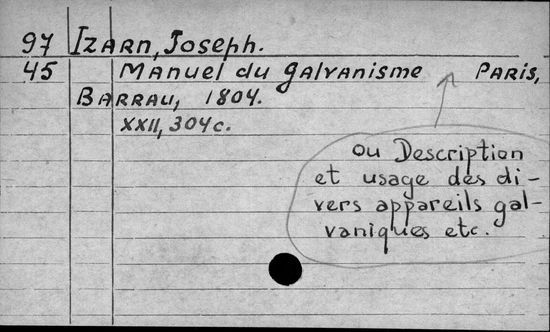 97 Izarn, Joseph.
45 Manuel du galvanisme Paris,
Barrau, 1804.
XXII, 304c.
ou Description
et usage des di-
vers appareils gal-
vaniques etc.